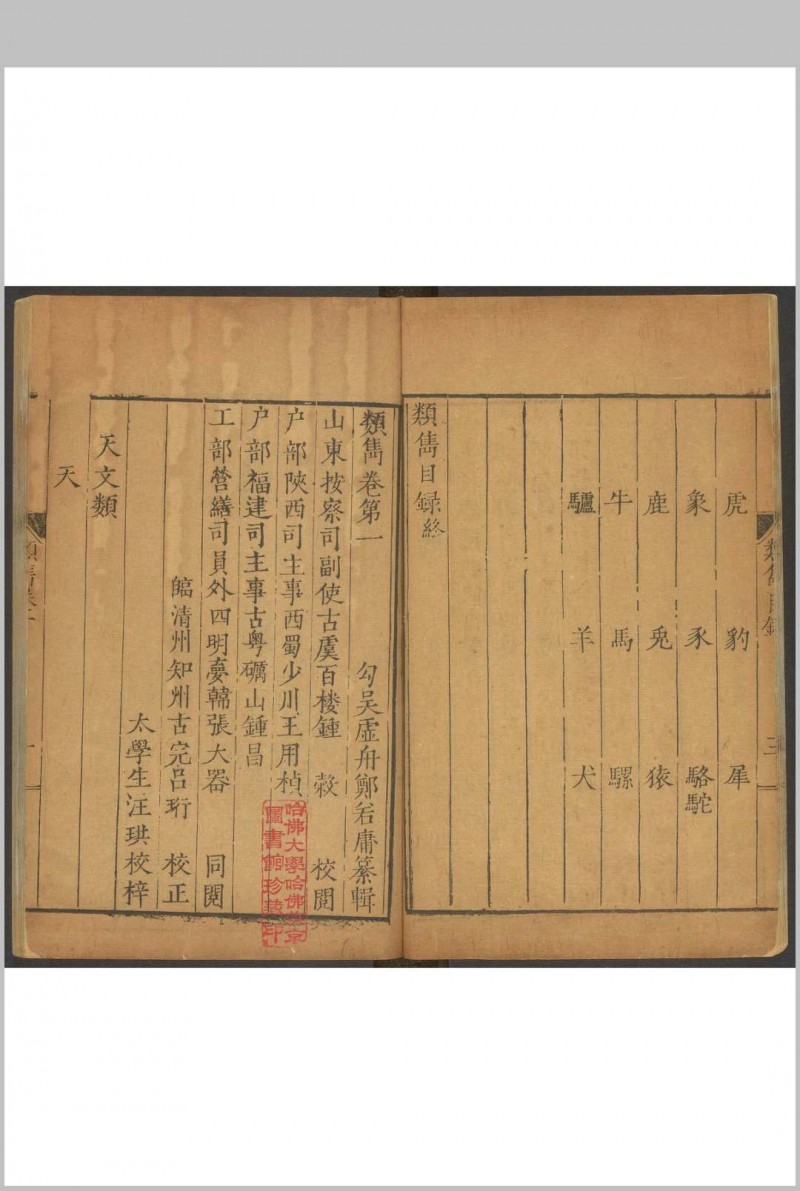 類雋目錄
三
虎　豹　犀
象　豕　駱駝
鹿　兎　猿
牛　馬　騾
驢　羊　犬
類雋目録終
類雋卷第一　勾吳虛舟鄭若庸纂輯
山東按察司副使古虞百楼鍾　穀　校閱
户部陝西司主事西蜀少川王用楨
户部福建司主事古粤礪山鍾昌
工部營繕司員外四明夣韓張大器　同閱
臨清州知州古完吕珩　校正
太學生汪珙校梓
天文類
天
類雋卷一
一
哈佛大學哈佛燕京
圖書館珍藏印